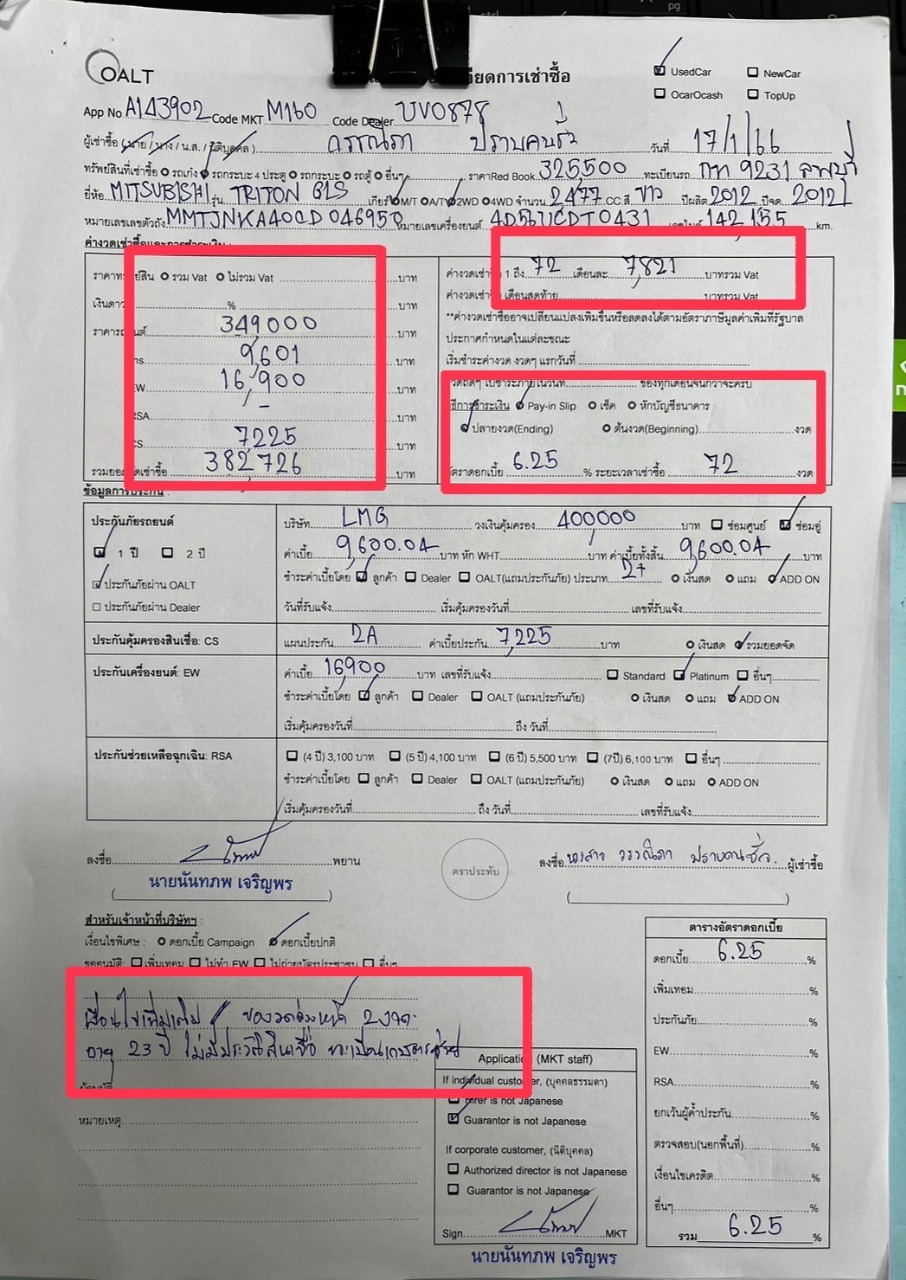 OALT
ยดการเช่าซื้อ
UsedCar NewCar
OcarOcash TopUp
App No A143902 Code MKT M160 Code Dealer UV0878
ผู้เช่าซื้อ (นาย / นาง / น.ส. / นิติบุคคล) วันที่ 17/1/66
ทรัพย์สินที่เช่าซื้อ รถเก๋ง รถกระบะ 4 ประตู รถกระบะ รถตู้ อื่นๆ ราคาRed Book 325,500 ทะเบียนรถ 9231 ลพบุรี
ยี่ห้อ MITSUBISHI รุ่น TRITON GLS เกียร์ M/T A/T 2WD 4WD จำนวน 2,477 CC.สี ขาว ปีผลิต 2012 ปีจด 2012
หมายเลขเลขตัวถัง MMTJNKA40CD046950 หมายเลขเครื่องยนต์ 4D56UCDT0431 142,155 km.
ค่างวดเช่าซื้อและการชำระเงิน :
ราคาทรัพย์สิน รวม Vat ไม่รวม Vat บาท
เงินดาว % บาท
ราคารถยนต์ 349,000 บาท
ns 9,601 บาท
EW 16,900 บาท
RSA - บาท
CS 7,225 บาท
รวมยอดเช่าซื้อ 382,726 บาท
ค่างวดเช่าซื้อ 1 ถึง 72 เดือนละ 7,821 บาทรวม Vat
ค่างวดเช่าซื้อ เดือนสุดท้าย บาทรวม Vat
**ค่างวดเช่าซื้ออาจเปลี่ยนแปลงเพิ่มขึ้นหรือลดลงได้ตามอัตราภาษีมูลค่าเพิ่มที่รัฐบาล
ประกาศกำหนดในแต่ละขณะ
เริ่มชำระค่างวด งวดๆ แรกวันที่
งวดถัดๆ ไปชำระภายในวันที่ ของทุกเดือนจนกว่าจะครบ
วิธีการชำระเงิน Pay-in Slip เช็ค หักบัญชีธนาคาร
ปลายงวด(Ending) ต้นงวด(Beginning) งวด
อัตราดอกเบี้ย 6.25 % ระยะเวลาเช่าซื้อ 72 งวด
ข้อมูลการประกัน :
ประกันภัยรถยนต์ บริษัท LMG วงเงินคุ้มครอง 400,000 บาท ซ่อมศูนย์ ซ่อมอู่
1 ปี 2 ปี ค่าเบี้ย 9,600.04 บาท หัก WHT บาท ค่าเบี้ยทั้งสิ้น 9,600.04 บาท
ประกันภัยผ่าน OALT ชำระค่าเบี้ยโดย ลูกค้า Dealer OALT(แถมประกันภัย) ประเภท 2+ เงินสด แถม ADD ON
ประกันภัยผ่าน Dealer วันที่รับแจ้ง เริ่มคุ้มครองวันที่ เลขที่รับแจ้ง
ประกันคุ้มครองสินเชื่อ: CS แผนประกัน 2A ค่าเบี้ยประกัน 7,225 บาท เงินสด รวมยอดจัด
ประกันเครื่องยนต์: EW ค่าเบี้ย 16,900 บาท เลขที่รับแจ้ง Standard Platinum อื่นๆ
ชำระค่าเบี้ยโดย ลูกค้า Dealer OALT (แถมประกันภัย) เงินสด แถม ADD ON
เริ่มคุ้มครองวันที่ ถึง วันที่
ประกันช่วยเหลือฉุกเฉิน: RSA (4 ปี) 3,100 บาท (5 ปี) 4,100 บาท (6 ปี) 5,500 บาท (7ปี) 6,100 บาท อื่นๆ
ชำระค่าเบี้ยโดย ลูกค้า Dealer OALT (แถมประกันภัย) เงินสด แถม ADD ON
เริ่มคุ้มครองวันที่ ถึง วันที่ เลขที่รับแจ้ง
ลงชื่อ พยาน ตราประทับ ลงชื่อ นางสาว ผู้เช่าซื้อ
นายนันทภพ เจริญพร
สำหรับเจ้าหน้าที่บริษัทฯ :
เงื่อนไขพิเศษ : ดอกเบี้ย Campaign ดอกเบี้ยปกติ
ขออนุมัติ: เพิ่มเทอม ไม่ทำ EW ไม่ถ่ายบัตรประชาชน อื่นๆ
เงื่อนไขเพิ่มเติม ของวดล่วงหน้า 2 งวด
อายุ 23 ปี ไม่มีประวัติสินเชื่อ
หมายเหตุ
Application (MKT staff)
If individual customer, (บุคคลธรรมดา)
Hirer is not Japanese
Guarantor is not Japanese
If corporate customer, (นิติบุคคล)
Authorized director is not Japanese
Guarantor is not Japanese
Sign MKT
นายนันทภพ เจริญพร
ตารางอัตราดอกเบี้ย
ดอกเบี้ย 6.25 %
เพิ่มเทอม %
ประกันภัย %
EW %
RSA %
ยกเว้นผู้ค้ำประกัน %
ตรวจสอบ(นอกพื้นที่) %
เงื่อนไขเครดิต %
อื่นๆ %
รวม 6.25 %